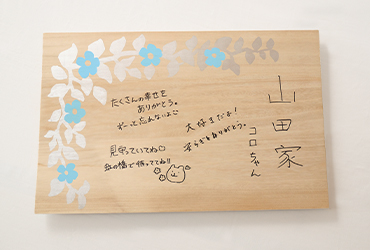 山田家
コロちゃん
たくさんの幸せを
ありがとう。
ずーっと忘れないよ♡
大好きだよ!
安らぎをありがとう。
見守っていてね♡
虹の橋で待っててね!!